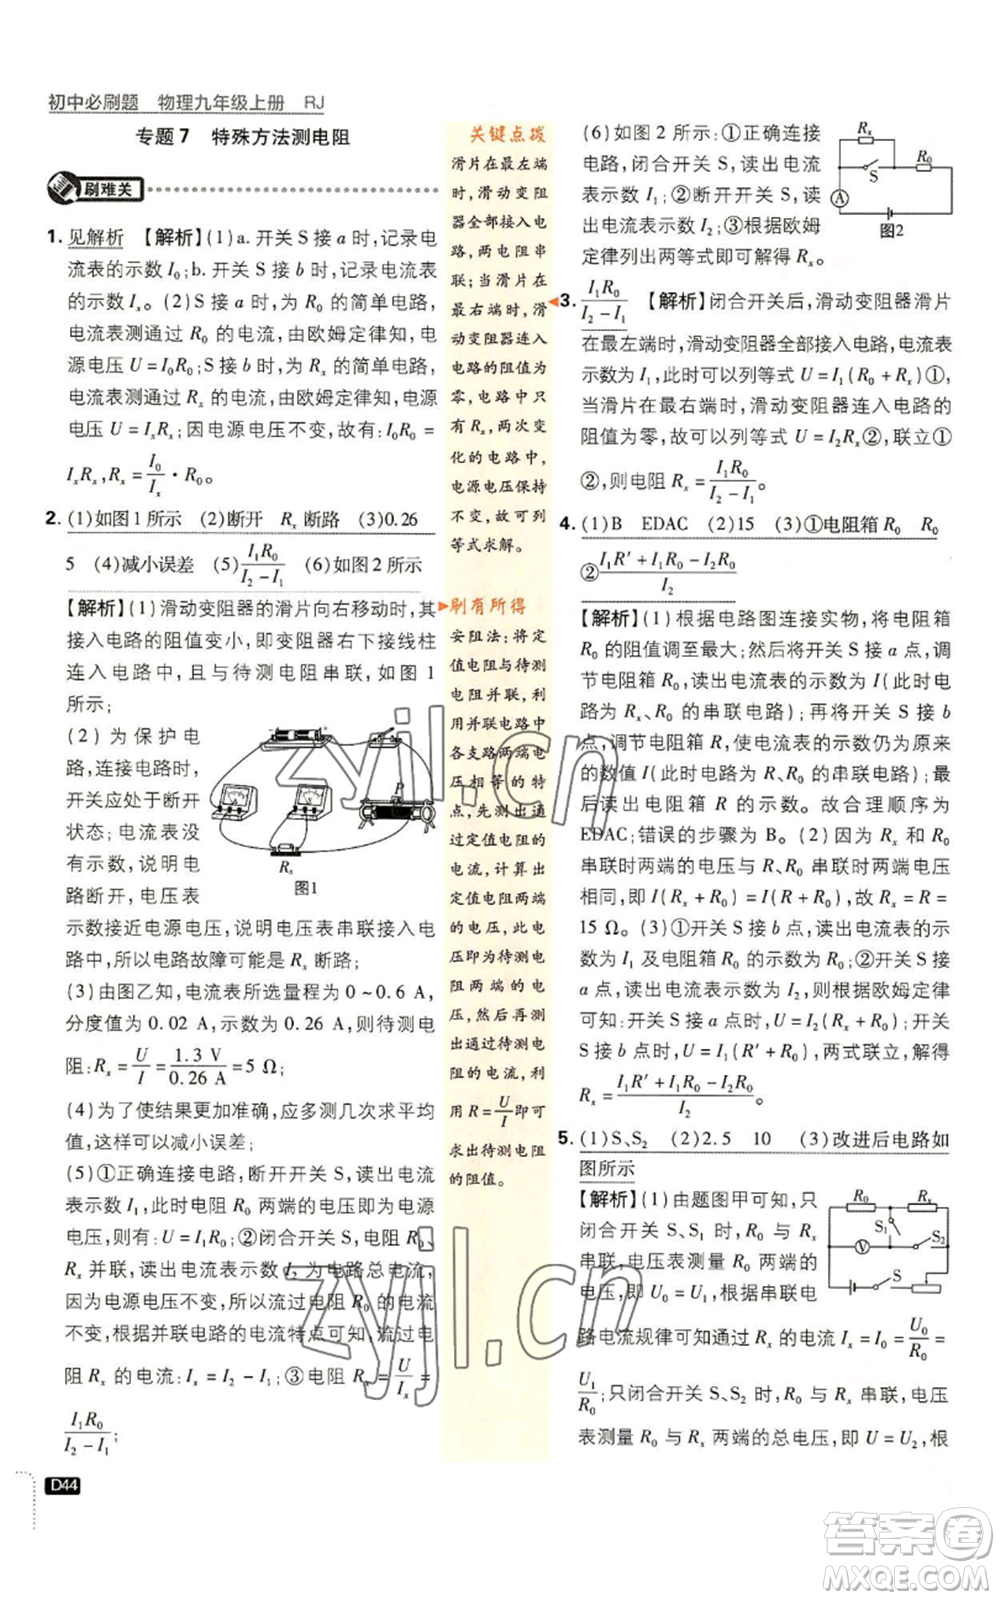 初中必刷题 物理九年级上册 RJ
专题7 特殊方法测电阻
刷难关
1. 见解析 【解析】(1)a.开关S接a时,记录电
流表的示数I₀;b.开关S接b时,记录电流表
的示数Iₓ。(2)S接a时,为R₀的简单电路,
电流表测通过R₀的电流,由欧姆定律知,电
源电压U=I₀R₀;S接b时,为Rₓ的简单电路,
电流表测通过Rₓ的电流,由欧姆定律知,电源
电压U=IₓRₓ;因电源电压不变,故有:I₀R₀=
IₓRₓ,Rₓ=I₀/Iₓ·R₀。
2. (1)如图1所示 (2)断开 Rₓ断路 (3)0.26
5 (4)减小误差 (5)I₁R₀/(I₂-I₁) (6)如图2所示
【解析】(1)滑动变阻器的滑片向右移动时,其
接入电路的阻值变小,即变阻器右下接线柱
连入电路中,且与待测电阻串联,如图1
所示;
(2)为保护电
路,连接电路时,
开关应处于断开
状态;电流表没
有示数,说明电
路断开,电压表
示数接近电源电压,说明电压表串联接入电
路中,所以电路故障可能是Rₓ断路;
Rₓ
P
图1
(3)由图乙知,电流表所选量程为0~0.6 A,
分度值为0.02 A,示数为0.26 A,则待测电
阻:Rₓ=U/I=1.3 V/0.26 A=5 Ω;
(4)为了使结果更加准确,应多测几次求平均
值,这样可以减小误差;
(5)①正确连接电路,断开开关S,读出电流
表示数I₁,此时电阻R₀两端的电压为电源
电压,则有:U=I₁R₀;②闭合开关S,电阻R₀、
Rₓ并联,读出电流表示数I₂,为电路总电流,
因为电源电压不变,所以流过电阻R₀的电流
不变,根据并联电路的电流特点可知,流过电
阻Rₓ的电流:Iₓ=I₂-I₁;电阻Rₓ=U/Iₓ=
I₁R₀/(I₂-I₁);
D44
关键点拨
滑片在最左端
时,滑动变阻
器全部接入电
路,两电阻串
联;当滑片在
最右端时,滑
动变阻器连入
电路的阻值为
零,电路中只
有Rₓ,两次变
化的电路中,
电源电压保持
不变,故可列
等式求解。
刷有所得
安阻法:将定
值电阻与待测
电阻并联,利
用并联电路中
各支路两端电
压相等的特
点,先测出通
过定值电阻的
电流,计算出
定值电阻两端
的电压,此电
压即为待测电
阻两端的电
压,然后再测
出通过待测电
阻的电流,利
用R=U/I即可
求出待测电阻
的阻值。
(6)如图2所示:①正确连接
电路,闭合开关S,读出电流
表示数I₁;②断开开关S,读
出电流表示数I₂;③根据欧姆
定律列出两等式即可解得Rₓ。
Rₓ
R₀
S
A
图2
3. I₁R₀/(I₂-I₁) 【解析】闭合开关后,滑动变阻器滑片
在最左端时,滑动变阻器全部接入电路,电流表
示数为I₁,此时可以列等式U=I₁(R₀+Rₓ)①,
当滑片在最右端时,滑动变阻器连入电路的
阻值为零,故可以列等式U=I₂Rₓ②,联立①
②,则电阻Rₓ=I₁R₀/(I₂-I₁)。
4. (1)B EDAC (2)15 (3)①电阻箱R₀ R₀
②(I₁R′+I₁R₀-I₂R₀)/I₂
【解析】(1)根据电路图连接实物,将电阻箱
R₀的阻值调至最大;然后闭合开关S接a点,调
节电阻箱R₀,读出电流表的示数为I(此时电
路为Rₓ、R₀的串联电路);再将开关S接b
点,调节电阻箱R,使电流表的示数仍为原来
的数值I(此时电路为R和R₀的串联电路);最
后读出电阻箱R的示数。故合理顺序为
EDAC;错误的步骤为B。(2)因为Rₓ和R₀
串联时两端的电压与R、R₀串联时两端电压
相同,即I(Rₓ+R₀)=I(R+R₀),故Rₓ=R=
15 Ω。(3)①开关S接b点,读出电流表的示
数为I₁及电阻箱R₀的示数R₀;②开关S接
a点,读出电流表的示数为I₂,则根据欧姆定律
可知:开关S接a点时,U=I₂(Rₓ+R₀);开关
S接b点时,U=I₁(R′+R₀),两式联立,解得
Rₓ=(I₁R′+I₁R₀-I₂R₀)/I₂。
5. (1)S、S₂ (2)2.5 10 (3)改进后电路如
图所示
【解析】(1)由题图甲可知,只
闭合开关S、S₁时,R₀与Rₓ
串联,电压表测量R₀两端的
电压,即U₀=U₁,根据串联电
路电流规律可知通过Rₓ的电流Iₓ=I₀=U₀/R₀=
U₁/R₀;只闭合开关S、S₂时,R₀与Rₓ串联,电压
表测量R₀与Rₓ两端的总电压,即U=U₂,根
R₀
Rₓ
S₁
S₂
V
S
zyjl.cn
zyjl.cn
答案圈
MXQE.COM